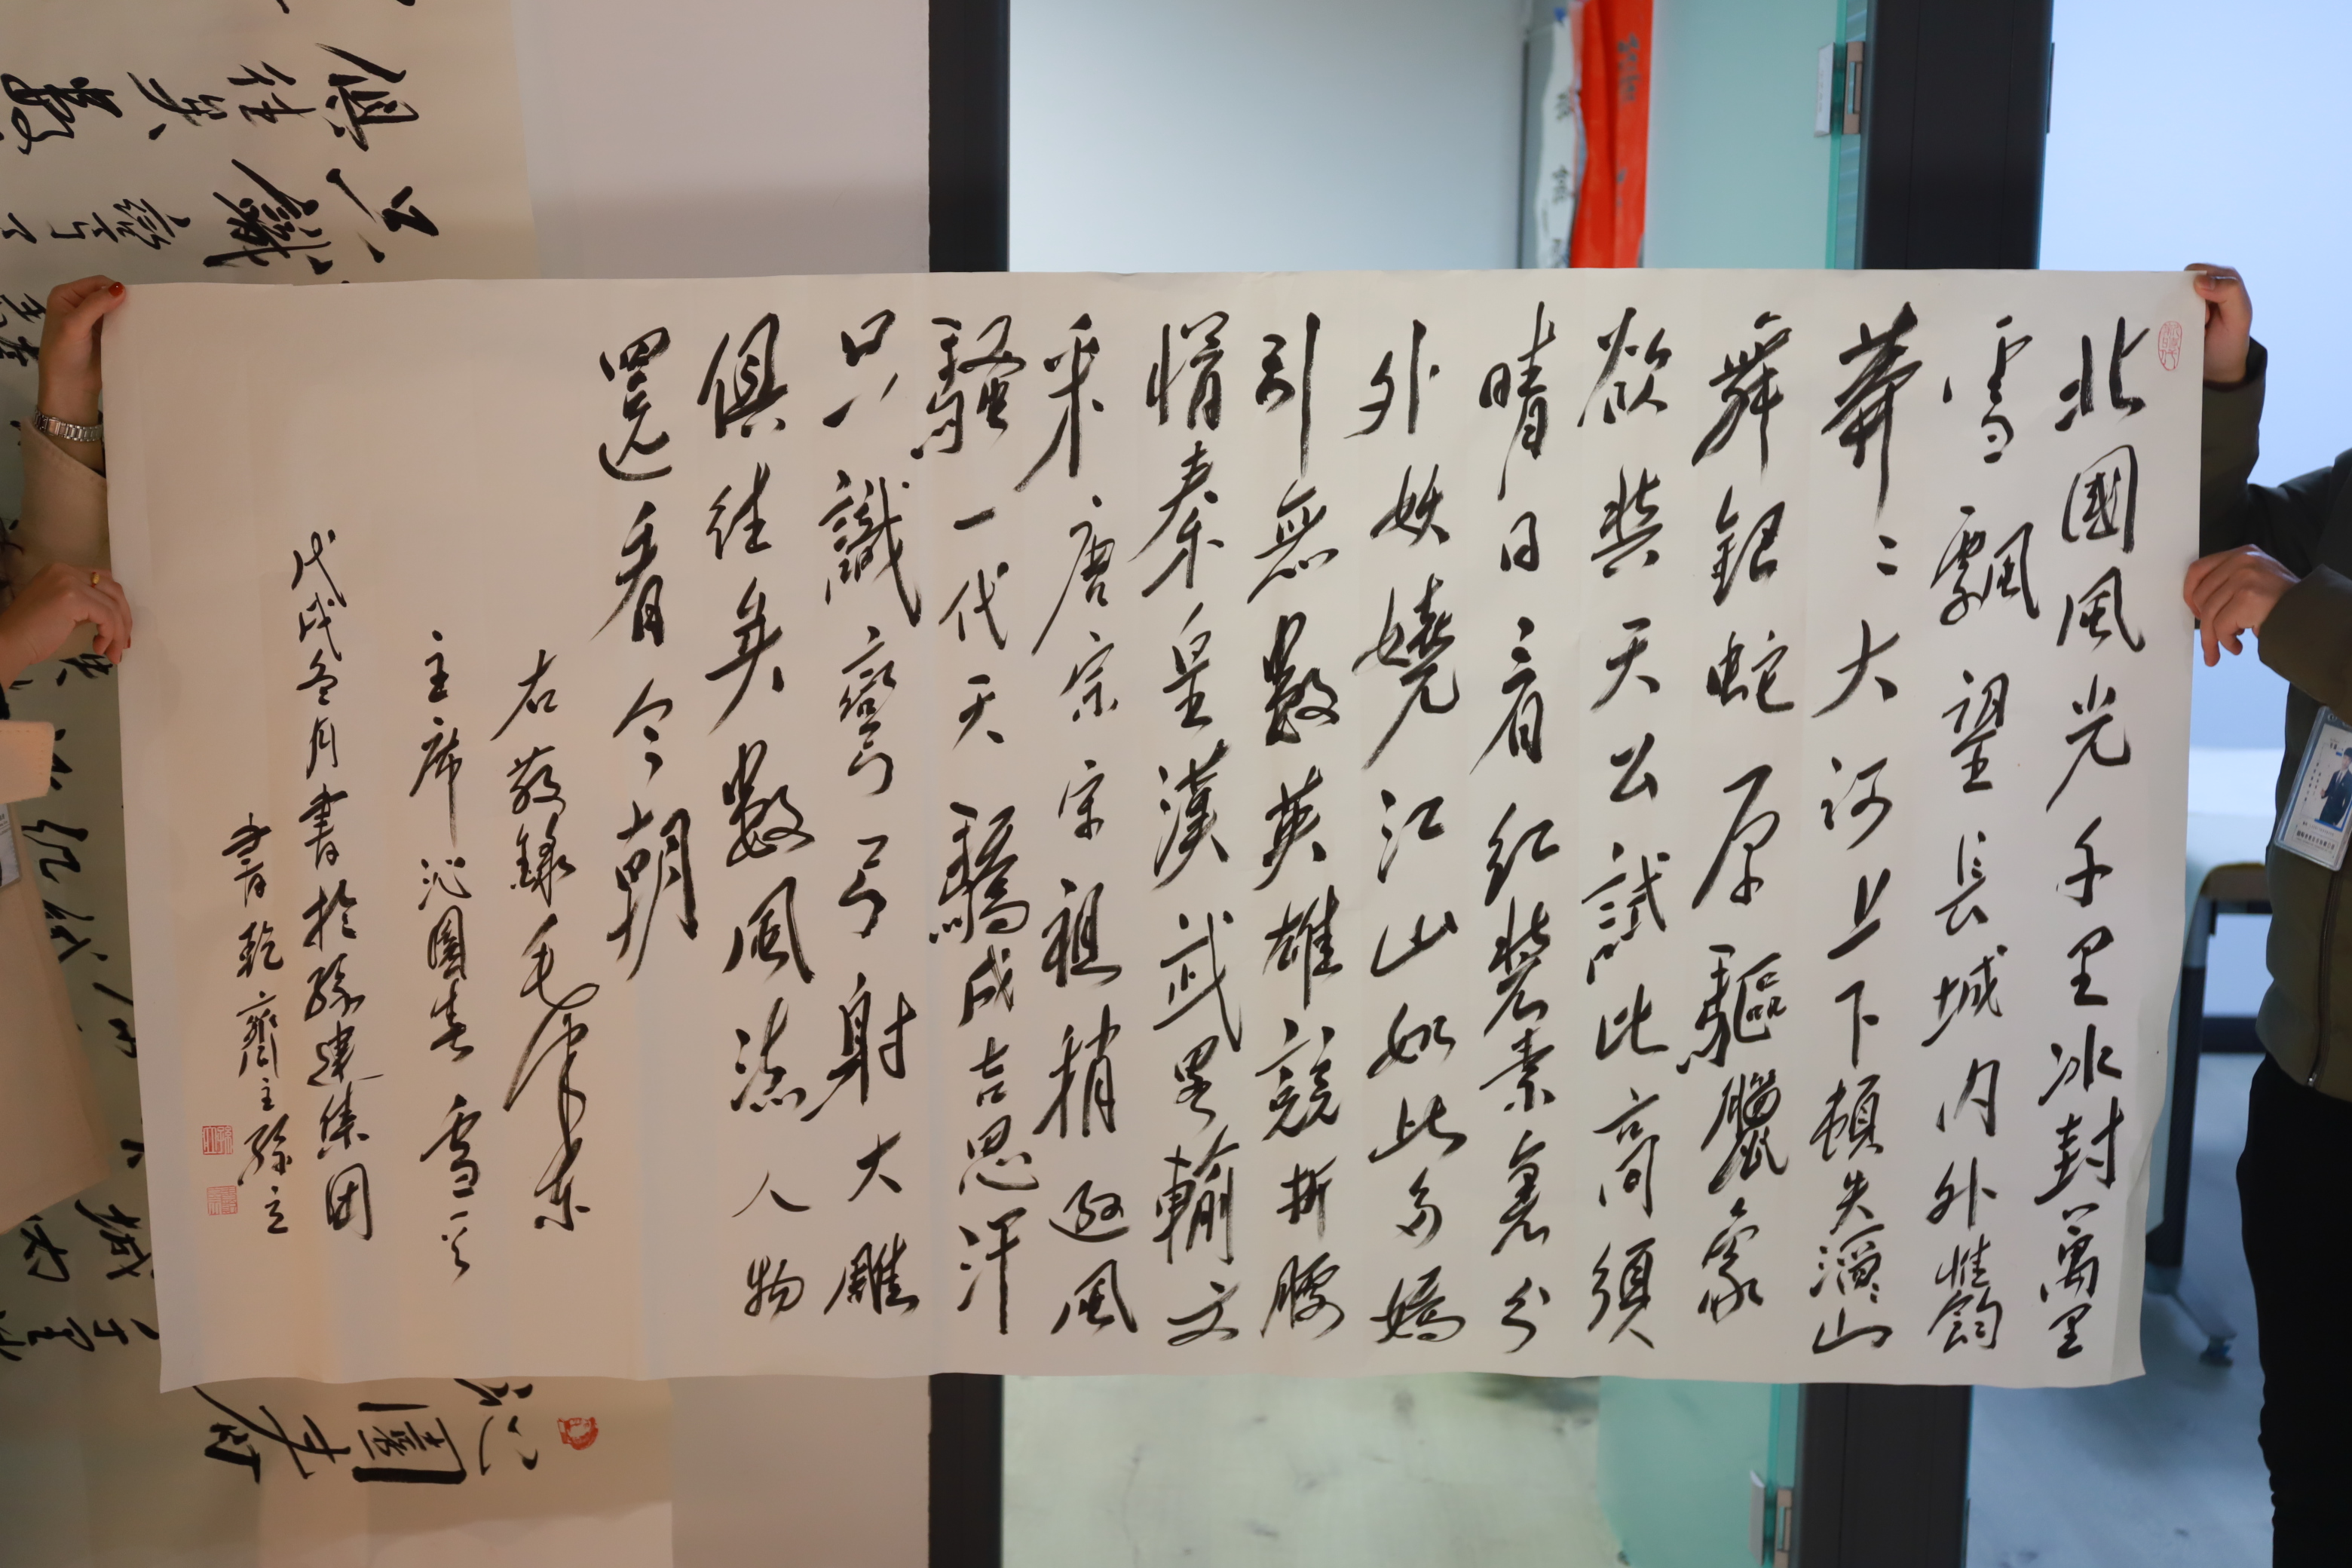 北國風光千里冰封萬里
雪飄望長城内外惟餘
莽〻大河上下頓失滔〻山
舞銀蛇原驅臘象
欲與天公試比高須
晴日看紅裝素裹分
外妖嬈江山如此多嬌
引無數英雄競折腰
惜秦皇漢武畧輸文
采唐宗宋祖稍遜風
騷一代天驕成吉思汗
只識彎弓射大雕
俱往矣數風流人物
還看今朝
右敬錄毛澤東
主席沁園春雪一首
戊戌冬月書於孫建集团
乾齋主孫立